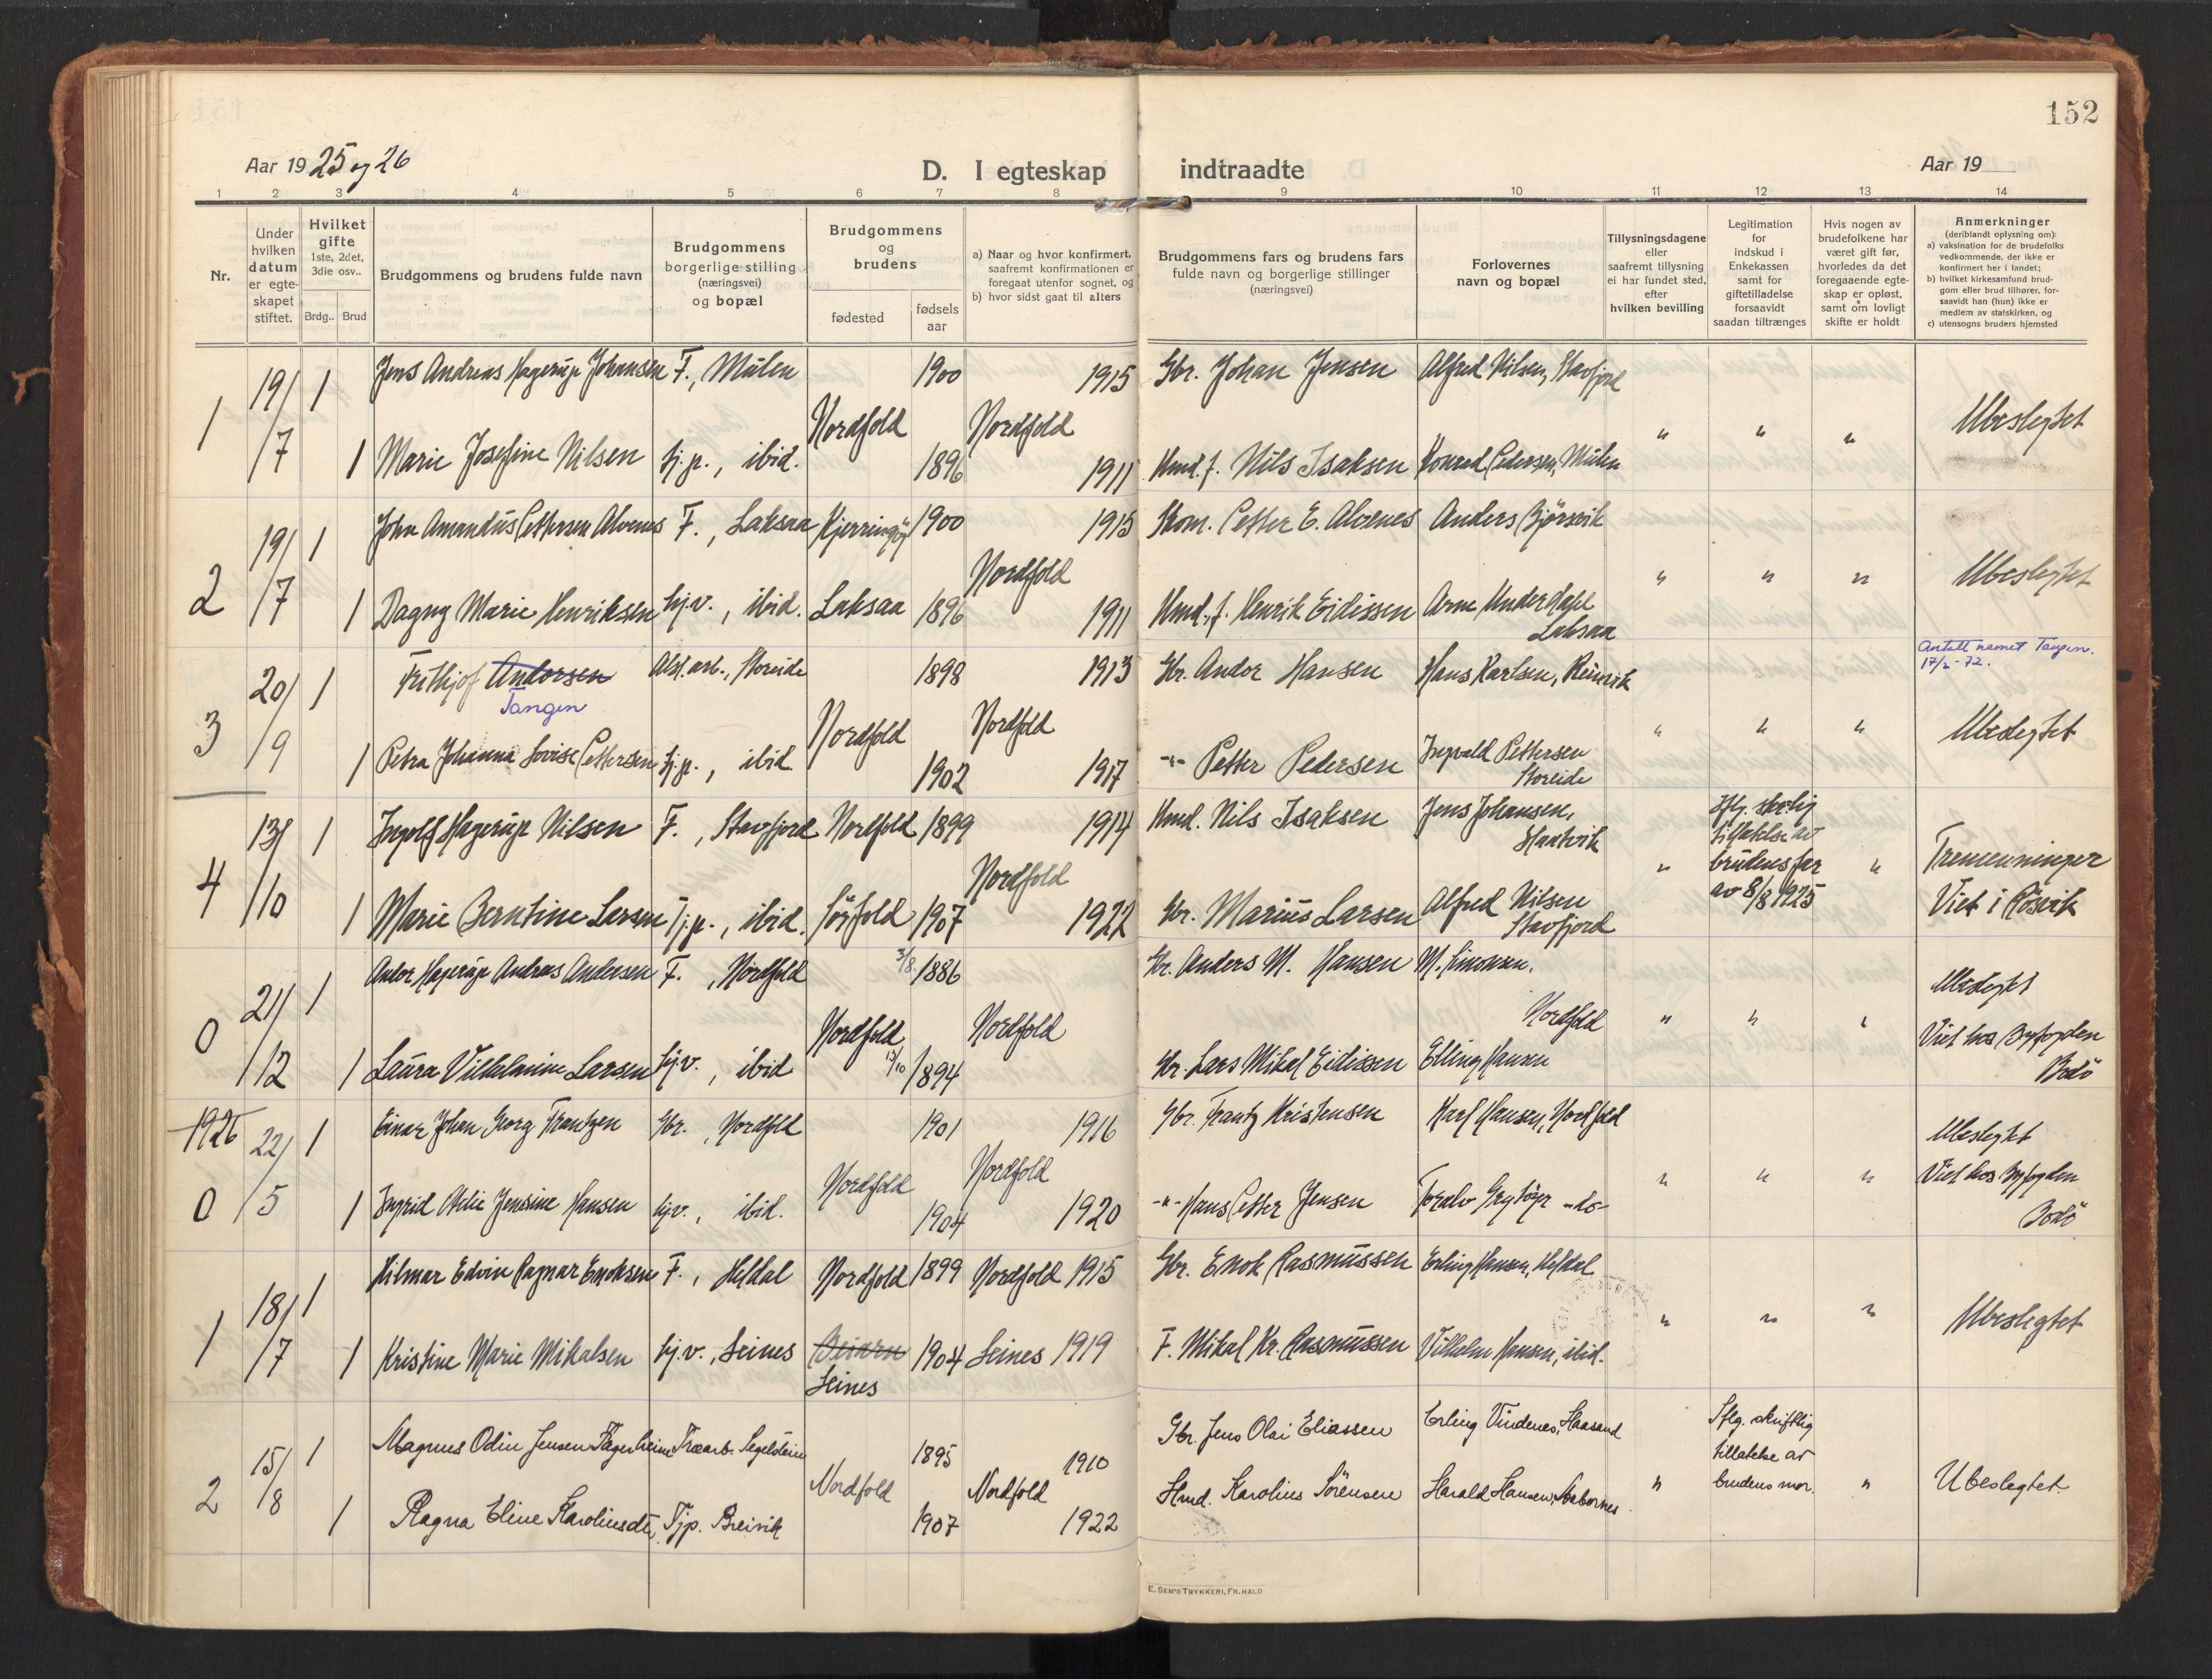 152
Aar 1925 og 26
D. I egteskap indtraadte
Aar 19
1 2 3 4 5 6 7 8 9 10 11 12 13 14
Nr.
Under hvilken datum er egte-skapet stiftet.
Hvilket gifte 1ste, 2det, 3die osv..
Brdg.. Brud
Brudgommens og brudens fulde navn
Brudgommens borgerlige stilling (næringsvei) og bopæl
Brudgommens og brudens
fødested
fødsels aar
a) Naar og hvor konfirmert, saafremt konfirmationen er foregaat utenfor sognet, og
b) hvor sidst gaat til alters
Brudgommens fars og brudens fars fulde navn og borgerlige stillinger (næringsvei)
Forlovernes navn og bopæl
Tillysningsdagene eller saafremt tillysning ei har fundet sted, efter hvilken bevilling
Legitimation for indskud i Enkekassen samt for giftetilladelse forsaavidt saadan tiltrænges
Hvis nogen av brudefolkene har været gift før, hvorledes da det foregaaende egte-skap er opløst, samt om lovligt skifte er holdt
Anmerkninger (deriblandt oplysning om):
a) vaksination for de brudefolks vedkommende, der ikke er konfirmert her i landet;
b) hvilket kirkesamfund brud-gom eller brud tilhører, for-saavidt han (hun) ikke er medlem av statskirken, og
c) utensogns bruders hjemsted
1 19/7 1 Jens Andreas Hagerup Johansen F., Mulen 1900 1915 Gbr. Johan Jensen Alfred Nilsen, Stavfjord
Nordfold Nordfold " " " Ubeslegtet
1 Marie Josefine Nilsen tj.p., ibid. 1896 1911 Kmd. f. Nils Isaksen Konrad Pedersen, Mulen
2 19/7 1 John Amandus Pettersen Alvenes F., Laksaa Kjerringøy 1900 1915 Kom. Petter E. Alvenes Anders Bjørsvik
Nordfold " " " Ubeslegtet
1 Dagny Marie Henriksen hj.v., ibid. Laksaa 1896 1911 Kmd., f. Henrik Eidissen Arne Underdahl
Laksaa
Antatt navnet Tangen.
3 20/9 1 Frithjof Andorsen Storeide 1898 1913 Gbr. Andor Hansen Hans Karlsen, Reinvik
Tangen
Nordfold Nordfold " " " Ubeslegtet
1 Petra Johanna Lovise Pettersen tj.p., ibid. 1902 1917 -"- Petter Pedersen Ingvald Pettersen
Storeide
4 13/10 1 Ingolf Hagerup Nilsen F., Stavfjord Nordfold 1899 1914 Kmd. Nils Isaksen Jens Johansen,
tillatelse av
Nordfold " brudens far " Tremenninger
av 8/8 1925 Viet i Røsvik
1 Marie Berntine Larsen tj.p., ibid. Sørfold 1907 1922 Gbr. Marius Larsen Alfred Nilsen
Stavfjord
0 21/12 1 Andor Hagerup Andreas Andersen F., Nordfold 1886 Gbr. Anders M. Hansen M. Simonsen.
Nordfold Nordfold Nordfold " " " Ubeslegtet
Viet hos Byfogden
Bodö
1 Laura Vilhelmine Larsen hj.v., ibid 13/10 1894 Gbr. Lars Mikal Eidissen Elling Hansen
1926
0 22/5 1 Einar Johan Georg Frantzen Gbr., Nordfold 1901 1916 Gbr. Frantz Kristensen Karl Hansen, Nordfold
Nordfold Nordfold " " " Ubeslegtet
Viet hos Byfogden
Bodö
1 Ingrid Jensine Hansen hjv., ibid. 1904 1920 -"- Hans Petter Jensen Toralv Grytøyr -do-
1 18/7 1 Hilmar Edvin Ragnar Enoksen F., Heldal Nordfold 1899 Nordfold 1915 Gbr. Enok Rasmussen Erling Hansen, Heldal
" " " Ubeslegtet
1 Kristine Marie Mikalsen hj.v., Seines Beiarn 1904 Seines 1919 F. Mikal Kr. Rasmussen Vilhelm Hansen, ibid.
Seines
2 15/8 1 Magnus Odin Jensen Fagerheim Træarb. Segelstein 1895 1910 Gbr. Jens Olai Eliassen Erling Vindenes, Haasand
Nordfold Nordfold " Iflg. skriftlig
tillatelse av
brudens mor. " Ubeslegtet.
1 Ragna Eline Karolinsdt. Tjp. Breivik 1907 1922 Hmd. Karolius Sörensen Harald Hansen,
E. SEM'S TRYKKERI, FR.HALD